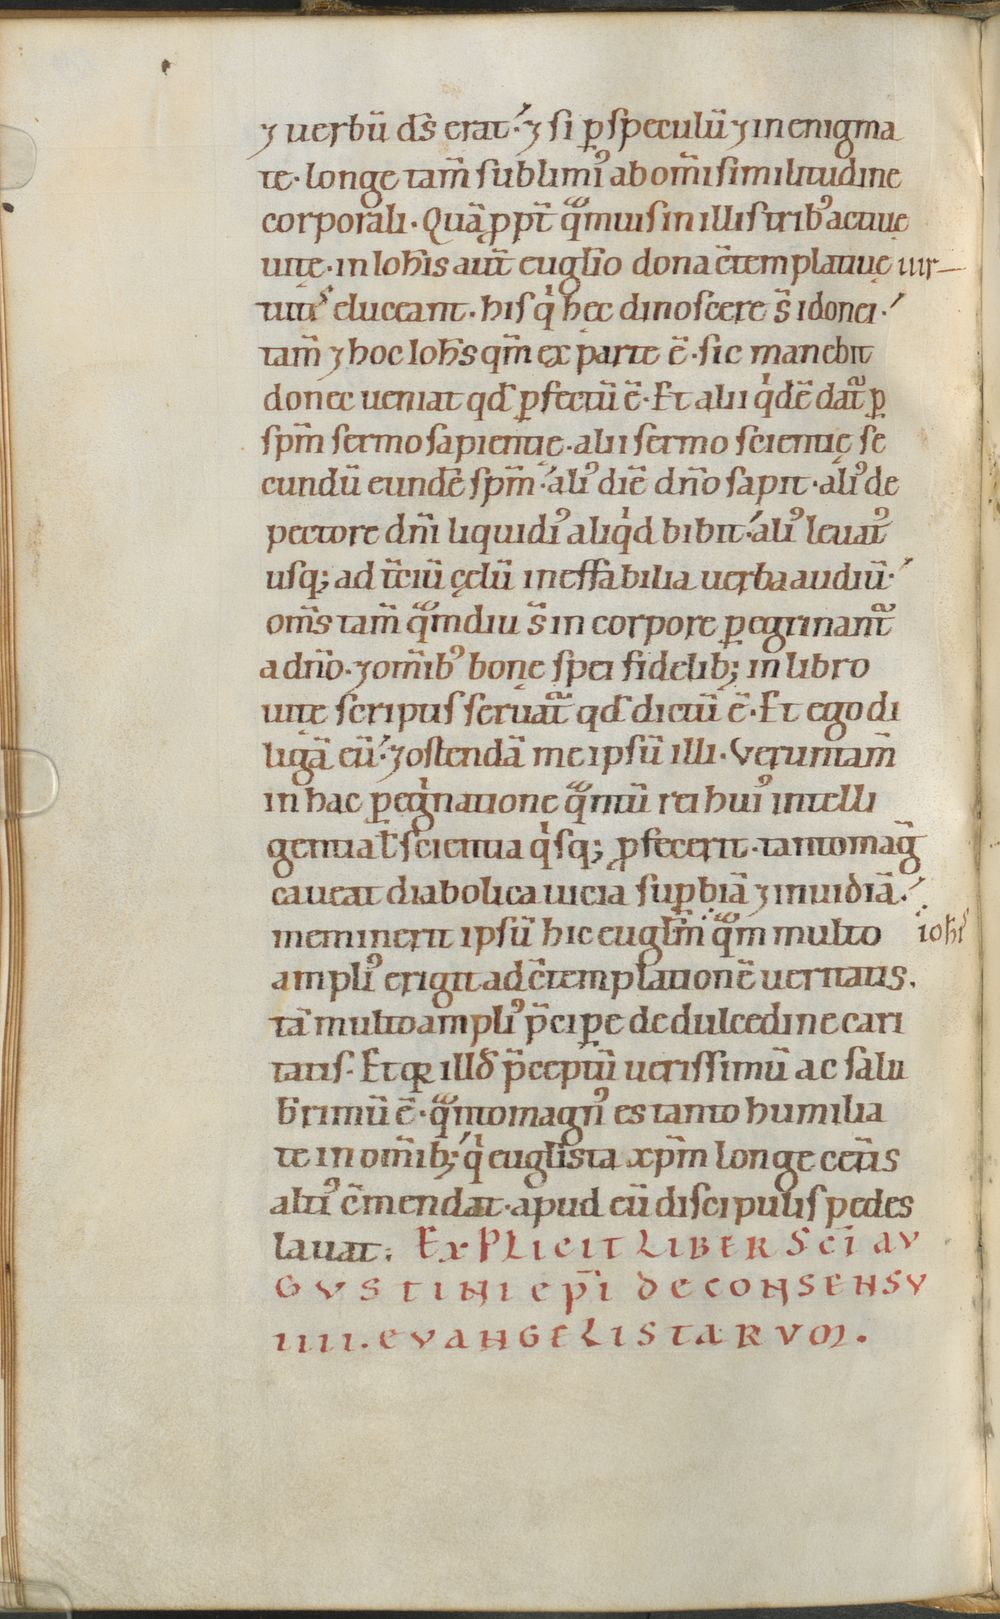 ⁊ uerbū ds̄ erat. ⁊ si ꝑ speculū ⁊ in enigma
te. longe tam̄ sublimiꝰ ab om̄i similitudine
corporali. Quāꝓpt̄ qͣmuis in illis tribꝰ actiue
uitę. in Ioħis aut̄ euglio dona c̄templatiuę uir
tutꝭ eluceant. his qⁱ hec dinoscere s̄ idonei.
tam̄ ⁊ hoc Ioħs qm̄ ex parte ē. sic manebit
donec ueniat qđ ꝑfectū ē. Et alii qⁱdē dat̄ ꝑ
sp̄m sermo sapientię. alii sermo scientię se
cundū eundē sp̄m. aliꝰ diē dn̄o sapit. aliꝰ de
pectore dn̄i liquidiꝰ aliqⁱd bibit. aliꝰ leuatꝰ
usq; ad t̄ciū cęlū ineffabilia uerba audiū.
om̄s tam̄ qͣmdiu s̄ in corpore ꝑegrinant̄
a dn̄o. ⁊ om̄ibꝰ bonę spei fidelib; in libro
uitę scriptis seruat̄ qđ dictū ē. Et ego di
ligā eū. ⁊ ostendā me ipsū illi. Veruntam̄
in hac ꝑegⁱnatione qͣntū rei huiꝰ intelli
gentia ł scientia qⁱsq; ꝓfecerit. tanto maḡ
caueat diabolica uicia suꝑbiā ⁊ inuidiā.
meminerit ipsū hic euglm̄ qͣm multo ioħis
ampliꝰ erigit ad c̄templationē ueritatis.
tā multo ampliꝰ p̄cipe de dulcedine cari
tatis. Et qꝛ illđ p̄ceptū uerissimū ac salu
b̄rimū ē. qͣnto magnꝰ es tanto humilia
te in om̄ib; qⁱ euglista xp̄m longe cet̄is
altiꝰ c̄mendat. apud eū discipulis pedes
lauat. Explicit liber sc̄i au
gustini ep̄i de consensu
iiii. evangelistarum.